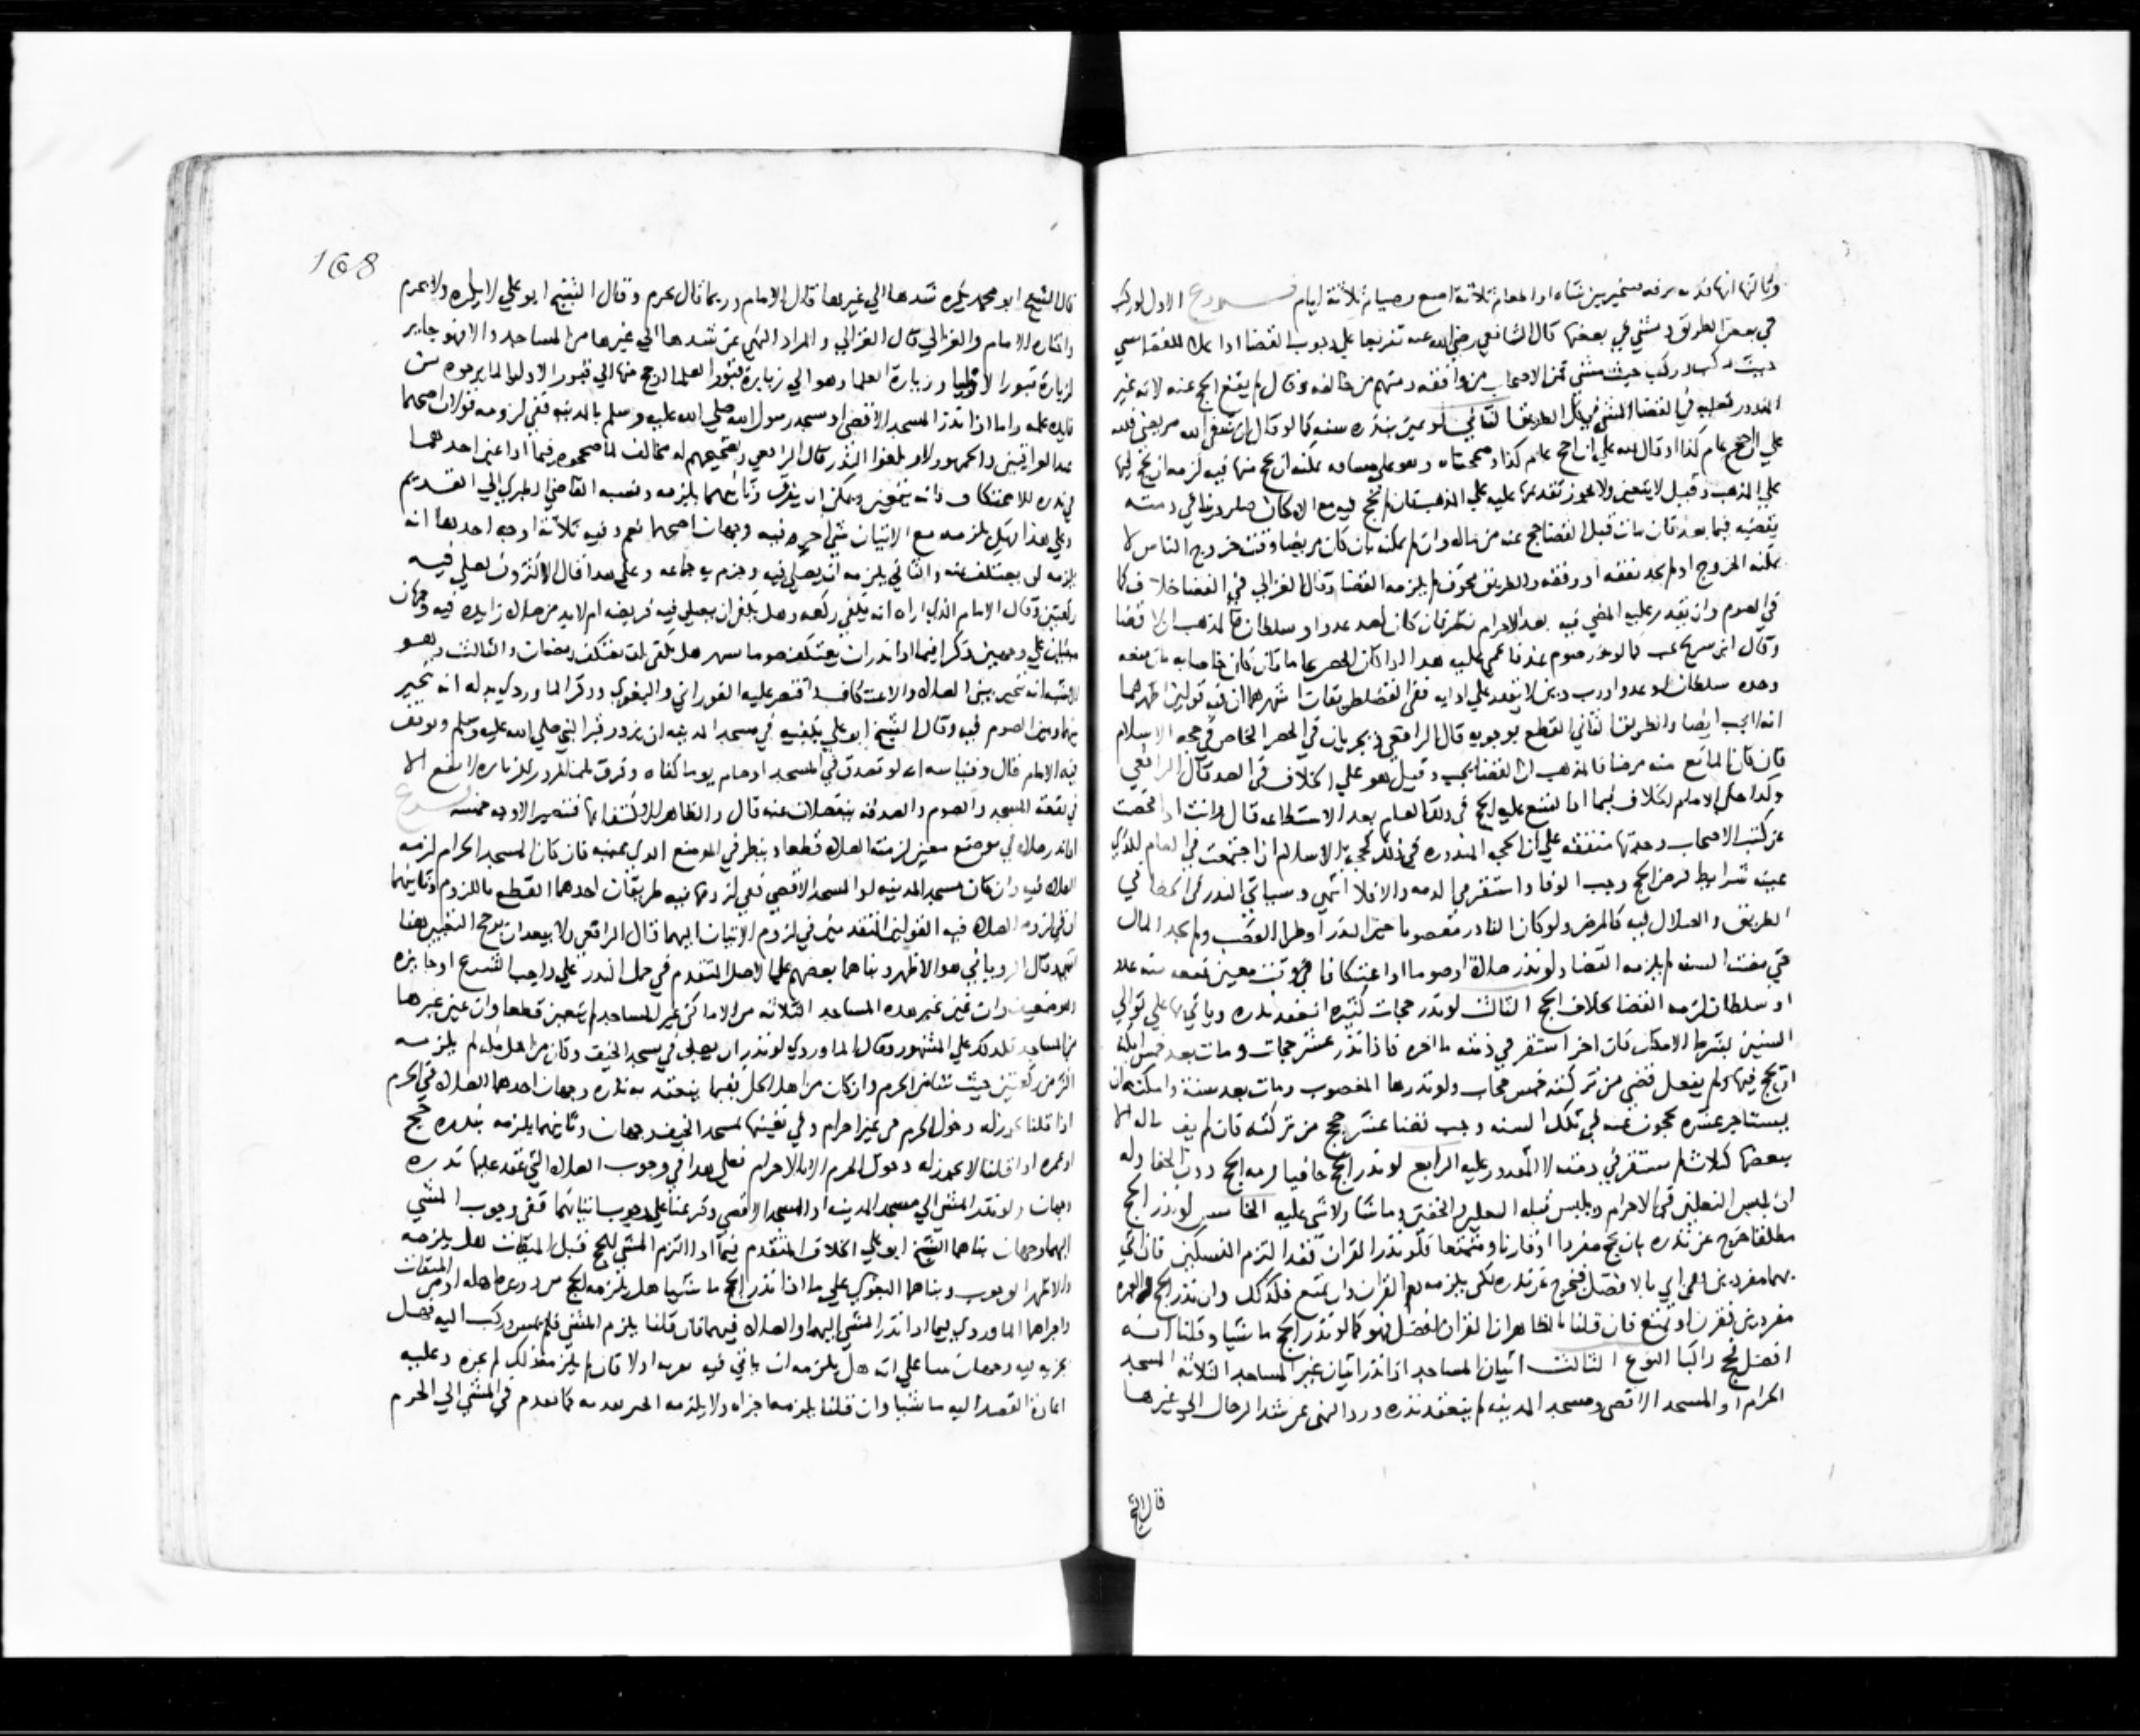 وثالثها انها فدية ترفه فيتخير بين شاه او اطعام ثلاثة اصع وصيام ثلاثة ايام فروع الاول لو ركب
في بعض الطريق ومشي في بعضها قال الشافعي رضي الله عنه تفريعا علي وجوب القضا اذا للقضا مشي
حيث ركب وركب حيث مشي فمن الاصحاب من وافقه ومنهم من خالفه وقال لم يقع الحج عنه لانه غير
المنذور فعليه في القضا المشي في كل الطريق الثاني لو عين بنذره سنه كما لو قال ان شفي الله مريضي فلله
علي الحج عام كذا او قال لله علي ان احج عام كذا وهو علي مسافه يمكنه ان يحج منها فيه لزمه ان يحج فيها
علي المذهب وقيل لا يتعين ولا يجوز تقديمها عليه علي المذهب فان لم يحج فيه مع الامكان صار دينا في ذمته
يقضيه فيما بعد فان مات قبل القضا حج عنه من ماله وان لم يمكنه بان كان مريضا وقت خروج الناس لا
يمكنه الخروج او لم يجد نفقه او رفقه والطريق مخوف لم يلزمه القضا وقال الغزالي في القضا خلاف كما
في الصوم وان تعذر عليه المضي فيه بعد الاحرام نظر فان كان لصد عدو او سلطان فالمذهب ان لا قضا
وقال ابن سريج يجب كما لو نذر صوم هذا اذا كان الحصر عاما فان كان خاصا به بان منعه
وحده سلطان او عدو او رب دين لا يقدر علي ادايه ففي القضا طريقان اشهرهما ان فيه قولين اظهرهما
انه لا يجب ايضا والطريق الثاني القطع بوجوبه قال الرافعي ويجريان في الحصر الخاص في حجه الاسلام
فان كان المانع منه مرضا فالمذهب ان القضا يجب وقيل هو علي الخلاف في الصد قال الرافعي
وكذا حكي الامام الخلاف فيما اذا امتنع عليه الحج في ذلك العام بعد الاستطاعه قال وانت اذا فحصت
عن كتب الاصحاب وجدتها متفقه علي ان الحجه المنذوره في ذلك كحجه الاسلام ان اجتمعت في العام الذي
عينه شرايط فرض الحج وجب الوفا واستقر في الذمه والا فلا انتهي وسياتي النذر في الخطا في
الطريق والضلال فيه كالمرض ولو كان الناذر معضوبا حين النذر او طرا العضب ولم يجد المال
حتي مضت السنه لم يلزمه القضا ولو نذر صلاة او صوما او اعتكافا في وقت معين فمنعه منه عدو
او سلطان لزمه القضا بخلاف الحج الثالث لو نذر حجات كثيره انعقد نذره وياتي بها علي توالي
السنين بشرط الامكان فان اخر استقر في ذمته ما اخره فاذا نذر عشر حجات ومات بعد خمس امكنه
ان يحج فيها ولم يفعل قضي من تركته خمس حجات ولو نذرها المعضوب ومات بعد سنة وامكنه ان
يستاجر عشره يحجون عنه في تلك السنه وجب قضا عشر حجج من تركته فان لم يف ماله الا
ببعضها كثلاث لم يستقر في ذمته الا المقدور عليه الرابع لو نذر الحج حافيا لزمه الحج دون الحفا وله
ان يلبس النعلين في الاحرام ويلبس قبله النعلين والخفين وما شا ولا شي عليه الخامس لو نذر الحج
مطلقا خرج عن نذره بان يحج مفردا او قارنا ومتمتعا فلو نذر القران فقد التزم النسكين فان اتي
بهما مفردين فقد اتي بالافضل فيخرج عن نذره لكن يلزمه دم القران وان تمتع فكذلك وان نذر الحج والعمره
مفردين فقرن او تمتع فان قلنا بالظاهر ان القران افضل فهو كما لو نذر الحج ماشيا وقلنا انه
افضل فحج راكبا النوع الثالث اتيان المساجد اذا نذر اتيان غير المساجد الثلاثة المسجد
الحرام او المسجد الاقصي ومسجد المدينه لم ينعقد نذره ورد النهي عن شد الرحال الي غيرها
قال الشيخ
168
قال الشيخ ابو محمد يكره شدها الي غيرها قال الامام وربما قال يحرم وقال الشيخ ابو علي لا يكره ولا يحرم
واختاره الامام والغزالي قال الغزالي والمراد النهي عن شدها الي غيرها من المساجد والا فهو جايز
لزيارة قبور الاوليا وزيارة العلما وهو الي زيارة قبور العلما ارجح منها الي قبور الاوليا لما يرجوه من
فايده علمه واما اذا نذر المسجد الاقصي او مسجد رسول الله صلي الله عليه وسلم بالمدينه ففي لزومه قولان اصحهما
عند العراقيين والجمهور لا ويلغوا النذر قال الرافعي وتصحيحهم له مخالف لما صححوه فيما اذا عين احدهما
في نذره للاعتكاف فانه يتعين ويمكن ان يفرق وثانيهما يلزمه ونسبه القاضي الطبري الي القديم
وعلي هذا هل يلزمه مع الاتيان شي اخر فيه وجهان اصحهما نعم وفيه ثلاثة اوجه احدها انه
يلزمه ان يعتكف فيه والثاني يلزمه ان يصلي فيه وجزم به جماعه وعلي هذا قال الاكثرون يصلي فيه
ركعتين وقال الامام الذي اراه انه يكفي ركعه وهل يكفي ان يصلي فيه فريضه ام لا بد من صلاة زايده فيه وجهان
مبنيان علي وجهين ذكرا فيما اذا نذر ان يعتكف صوما هل يكفي ان يعتكف رمضان والثالث وهو
الاشبه انه يتخير بين الصلاة والاعتكاف واقتصر عليه الفوراني والبغوي وذكر الماوردي بدله انه يتخير
بينهما وبين الصوم فيه وقال الشيخ ابو علي يكفيه في مسجد المدينه ان يزور قبر النبي صلي الله عليه وسلم وتوقف
فيه الامام قال وقياسه انه لو تصدق في المسجد او صام يوما كفاه وفرق بان المزور للزياره لا تقع الا
في بقعة المسجد والصوم والصدقه ينفصلان عنه قال والظاهر الاكتفا بها فتصير الاوجه خمسه فروع
اذا نذر صلاة في موضع معين لزمته الصلاة قطعا وينظر في الموضع الذي عينه فان كان المسجد الحرام لزمه
الصلاة فيه وان كان مسجد المدينه او المسجد الاقصي ففي لزومها فيه طريقان احدهما القطع باللزوم وثانيهما
ان في لزوم الصلاة فيه القولين المتقدمين في لزوم الاتيان اليهما قال الرافعي ولا يبعد ان يرجح التعيين هنا
قال الروياني هو الاظهر وبناهما بعضهم علي الاصل المتقدم في حمل النذر علي واجب الشرع او جايزه
وهو ضعيف وان عين غير هذه المساجد الثلاثه من الاماكن غير المساجد لم يتعين قطعا وان عين غيرها
من المساجد فكذلك علي المشهور وقال الماوردي لو نذر ان يصلي في مسجد الخيف وكان من اهل مكه لم يلزمه
اكثر من ركعتين حيث شا من الحرم وان كان من اهل الحل ففيما ينعقد به نذره وجهان احدهما الصلاة في الحرم
اذا قلنا يجوز له دخول الحرم من غير احرام وفي تعينها لمسجد الخيف وجهان وثانيهما يلزمه بنذره حج
او عمره اذا قلنا لا يجوز له دخول الحرم الا بالاحرام فعلي هذا في وجوب الصلاة التي عقد عليها نذره
وجهان ولو نذر المشي الي مسجد المدينه او المسجد الاقصي وفرعنا علي وجوب اتيانهما ففي وجوب المشي
اليهما وجهان بناهما الشيخ ابو علي الخلاف المتقدم فيما اذا التزم المشي للحج قبل الميقات هل يلزمه
والاظهر الوجوب وبناهما البغوي علي ما اذا نذر الحج ماشيا هل يلزمه الحج من دويره اهله او من الميقات
واجراهما الماوردي فيما اذا نذر المشي اليهما والصلاة فيهما فان قلنا يلزم المشي فلم يمش وركب اليه فهل
يجزيه فيه وجهان بنا علي انه هل يلزمه ان ياتي فيه بقربه اولا فان لم يلزمه ذلك لم يجزه وعليه
اعادة القصد اليه ماشيا وان قلنا يلزمه اجزاه ولا يلزمه الجبر بفديه كما تقدم في المشي الي الحرم